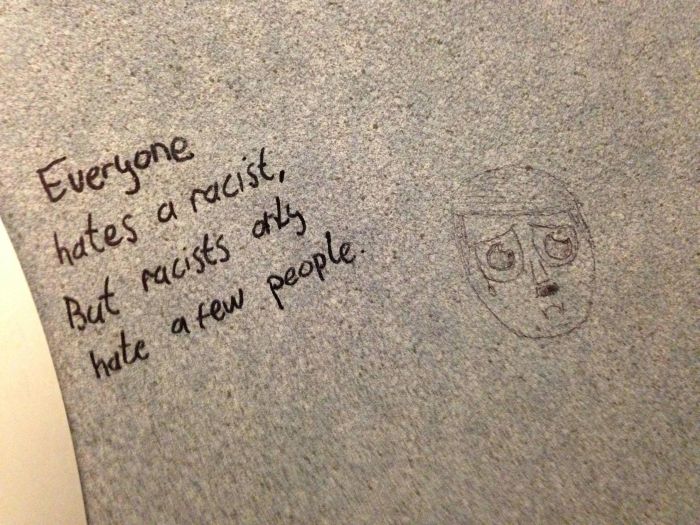 Everyone
hates a racist,
But racists only
hate a few people.